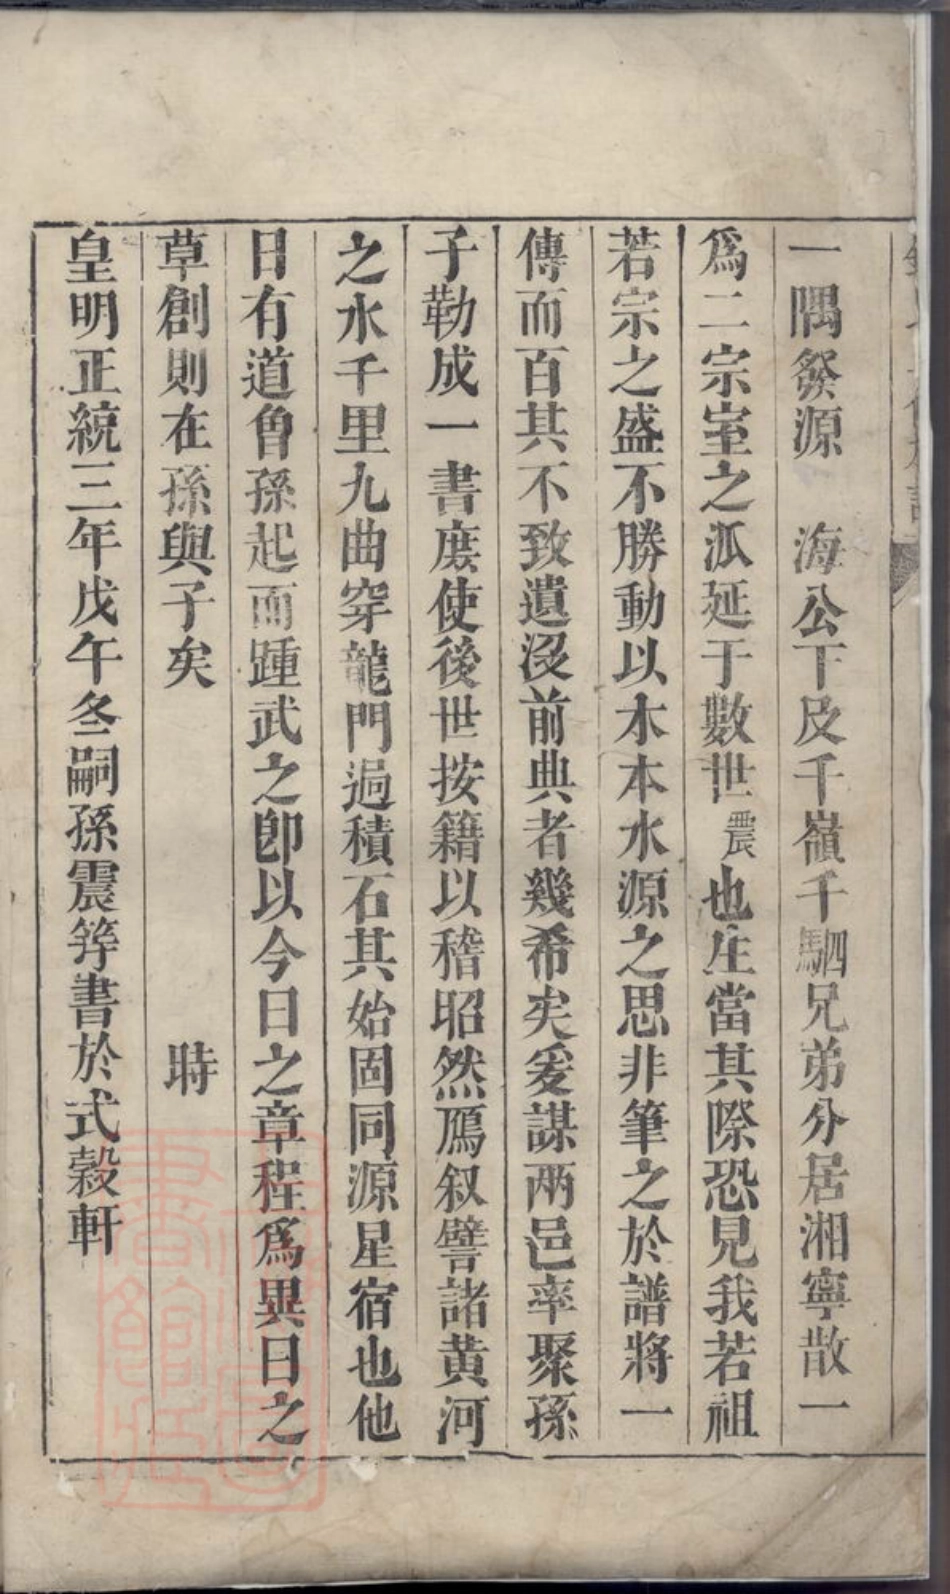 一隅發源　海公下及千嶺千駟兄弟分居湘寧散一
爲二宗室之派延于數世震也生當其際恐見我若祖
若宗之盛不勝動以木本水源之思非筆之於譜將一
傳而百其不致遺沒前典者幾希矣爰謀兩邑率聚孫
子勒成一書庶使後世按籍以稽昭然鴈叙譬諸黃河
之水千里九曲穿龍門過積石其始固同源星宿也他
日有道曾孫起而踵武之卽以今日之章程爲異日之
草創則在孫與子矣　　　　　　時
皇明正統三年戊午冬嗣孫震等書於式穀軒